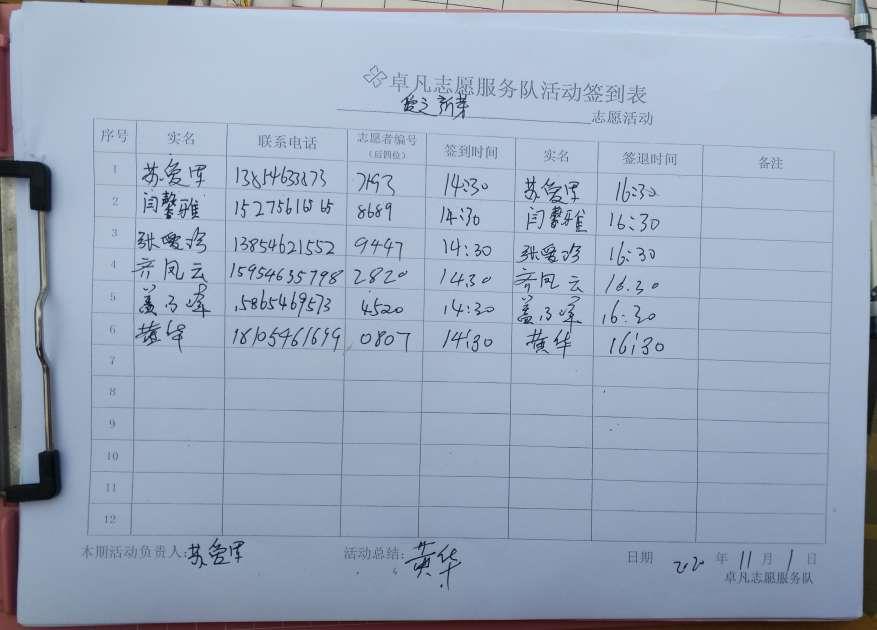 卓凡志愿服务队活动签到表
爱之新芽 志愿活动
序号 实名 联系电话 志愿者编号（后四位） 签到时间 实名 签退时间 备注
1 苏爱军 14:30 苏爱军 16:30
2 闫馨雅 15275616565 8689 14:30 闫馨雅 16:30
3 张爱珍 13854621552 9447 14:30 张爱珍 16:30
4 齐凤云 15954635798 2820 14:30 齐凤云 16:30
5 15865469573 4520 14:30 16:30
6 黄华 18105461699 0807 14:30 黄华 16:30
7
8
9
10
11
12
本期活动负责人:苏爱军 活动总结:黄华 日期 2020 年 11 月 1 日
卓凡志愿服务队